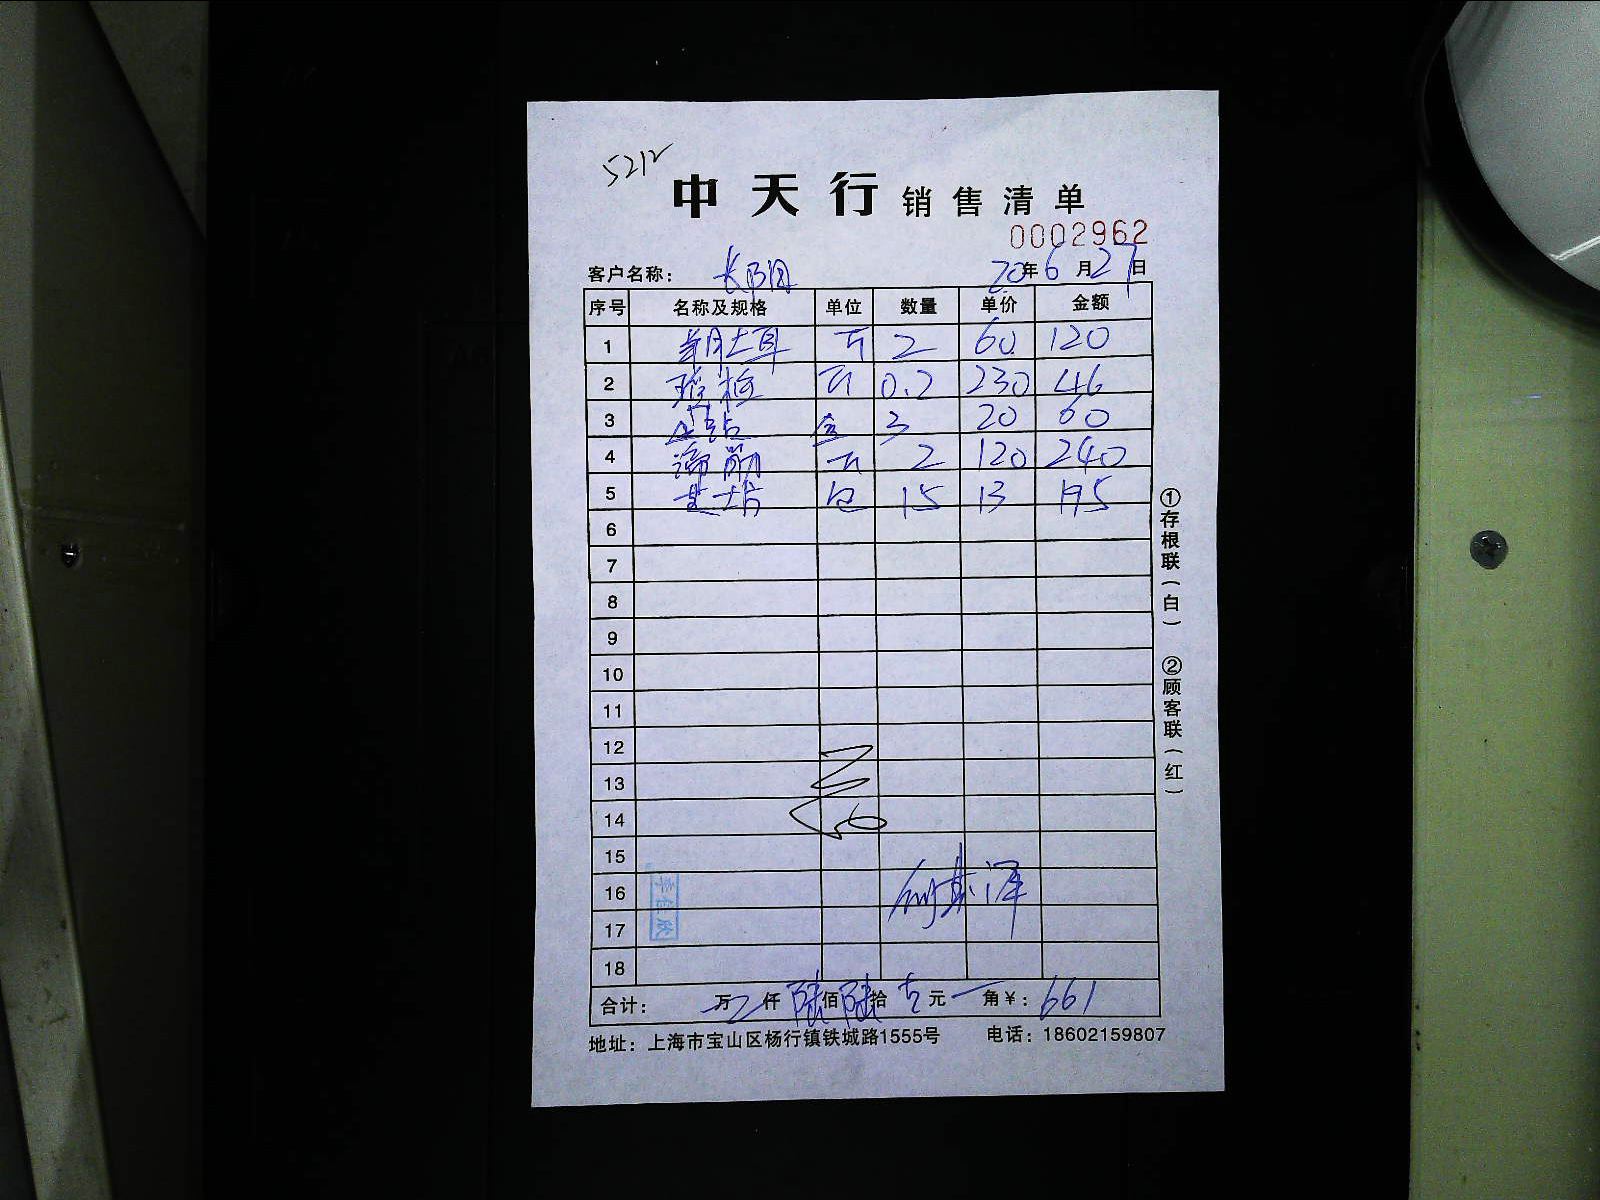 5212
中天行 销售清单
0002962
客户名称: 长阳 20年6月27日
序号 名称及规格 单位 数量 单价 金额
1 2 60 120
2 0.2 230 46
3 盒 3 20 60
4 2 120 240
5 包 15 13 195
6
7
8
9
10
11
12
13
14
15
16
17
18
合计: 万 仟 陆佰陆拾 元 角 ¥: 661
地址: 上海市宝山区杨行镇铁城路1555号 电话: 18602159807
①存根联(白) ②顾客联(红)